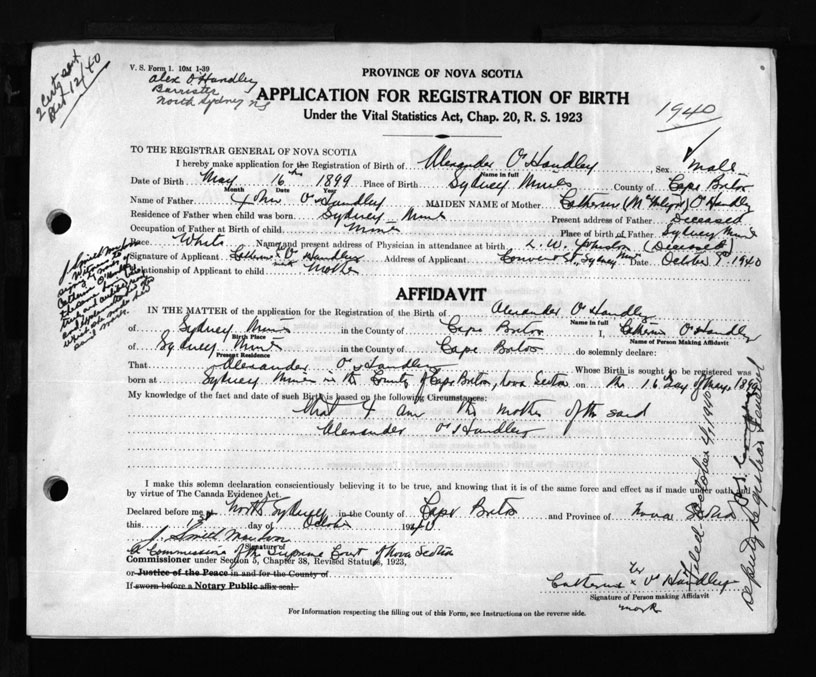 V. S. Form 1. 10M 1-39
2 Certs sent
Oct 12/40
Alex O'Handley
Barrister
North Sydney NS
PROVINCE OF NOVA SCOTIA
APPLICATION FOR REGISTRATION OF BIRTH
Under the Vital Statistics Act, Chap. 20, R. S. 1923
1940
TO THE REGISTRAR GENERAL OF NOVA SCOTIA
I hereby make application for the Registration of Birth of Alexander O'Handley Sex Male
Name in full
Date of Birth May 16th 1899 Place of Birth Sydney Mines County of Cape Breton
Month Date Year
Name of Father John O'Handley MAIDEN NAME of Mother Catherine O'Handley
Residence of Father when child was born Sydney Mines Present address of Father Deceased
Occupation of Father at Birth of child Miner Place of birth of Father Sydney Mines
Race White Name and present address of Physician in attendance at birth L. W. Johnston (Deceased)
Signature of Applicant Catherine x O'Handley Address of Applicant Convent St., Sydney Mines Date October 1940
mark
Relationship of Applicant to child Mother
AFFIDAVIT
IN THE MATTER of the application for the Registration of the Birth of Alexander O'Handley
Name in full
of Sydney Mines in the County of Cape Breton I, Catherine O'Handley
Birth Place Name of Person Making Affidavit
of Sydney Mines in the County of Cape Breton do solemnly declare:
Present Residence
That Alexander O'Handley Whose Birth is sought to be registered was
born at Sydney Mines in the County of Cape Breton, Nova Scotia on the 16th day of May, 1899
My knowledge of the fact and date of such Birth is based on the following Circumstances:
that I am the mother of the said
Alexander O'Handley
I make this solemn declaration conscientiously believing it to be true, and knowing that it is of the same force and effect as if made under oath and
by virtue of The Canada Evidence Act.
Declared before me at North Sydney in the County of Cape Breton and Province of Nova Scotia
this 1st day of October 1940
Signature of
A Commissioner of the Supreme Court of Nova Scotia
Commissioner under Section 5, Chapter 38, Revised Statutes, 1923,
or Justice of the Peace in and for the County of
If sworn before a Notary Public affix seal.
Catherine x O'Handley
Her
mark
Signature of Person making Affidavit
For Information respecting the filling out of this Form, see Instructions on the reverse side.
Filed October 4, 1940
Deputy Registrar General